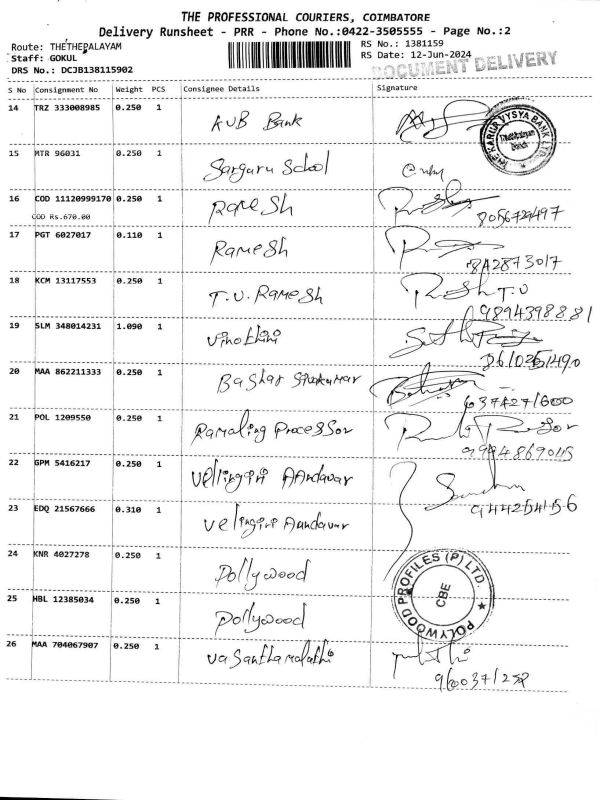 THE PROFESSIONAL COURIERS, COIMBATORE
Delivery Runsheet - PRR - Phone No.:0422-3505555 - Page No.:2
Route: THETHEPALAYAM RS No.: 1381159
Staff: GOKUL RS Date: 12-Jun-2024
DRS No.: DCJB138115902 DOCUMENT DELIVERY
S No Consignment No Weight PCS Consignee Details Signature
14 TRZ 333008985 0.250 1 KVB Bank
THE KARUR VYSYA BANK LTD.
15 MTR 96031 0.250 1 Sarguru School
16 COD 11120999170 0.250 1 Ramesh
COD Rs.670.00 8056729497
17 PGT 6027017 0.110 1 Ramesh
842873017
18 KCM 13117553 0.250 1 T.U. Ramesh
9894398881
19 SLM 348014231 1.090 1 Vinothini
20 MAA 862211333 0.250 1 Baskar Sivakumar
6374271600
21 POL 1209550 0.250 1 Ramaling Processor
22 GPM 5416217 0.250 1 Vellingiri Aandavar
23 EDQ 21567666 0.310 1 Velingiri Aandavar
24 KNR 4027278 0.250 1 Pollywood
POLYWOOD PROFILES (P) LTD.
CBE
25 HBL 12385034 0.250 1 Pollywood
26 MAA 704067907 0.250 1 Vasanthamalathi